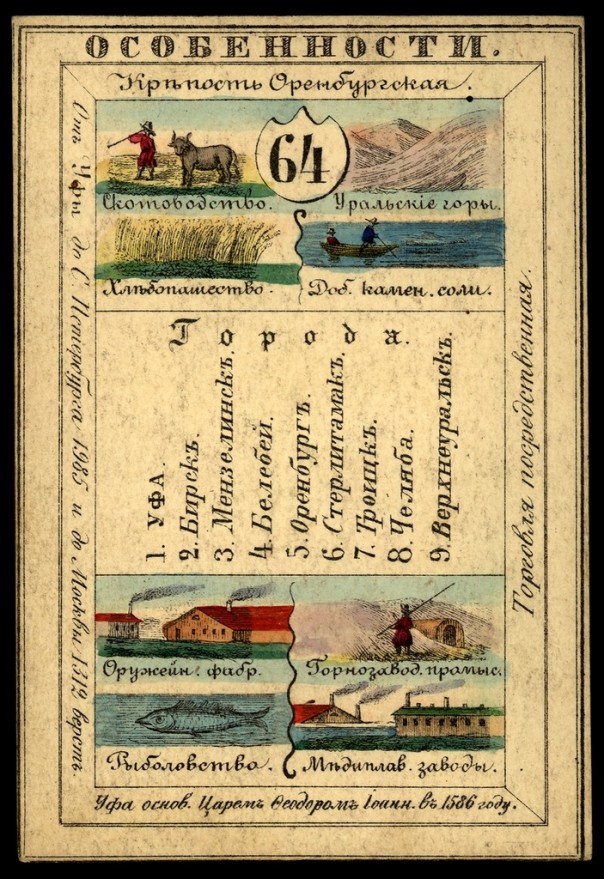 ОСОБЕННОСТИ.
Крѣпость Оренбургская.
64
Скотоводство.
Уральскіе горы.
Хлѣбопашество.
Доб. камен. соли.
Отъ Уфы до С. Петербурга 1985 и до Москвы 1312 верстъ.
Города.
1. УФА.
2. Бирскъ.
3. Мензелинскъ.
4. Белебей.
5. Оренбургъ.
6. Стерлитамакъ.
7. Троицкъ.
8. Челяба.
9. Верхнеуральскъ.
Торговля посредственная.
Оружейн. фабр.
Горнозавод. прамыс.
Рыболовство.
Мѣдиплав. заводы.
Уфа основ. Царемъ Ѳеодоромъ Іоанн. въ 1586 году.